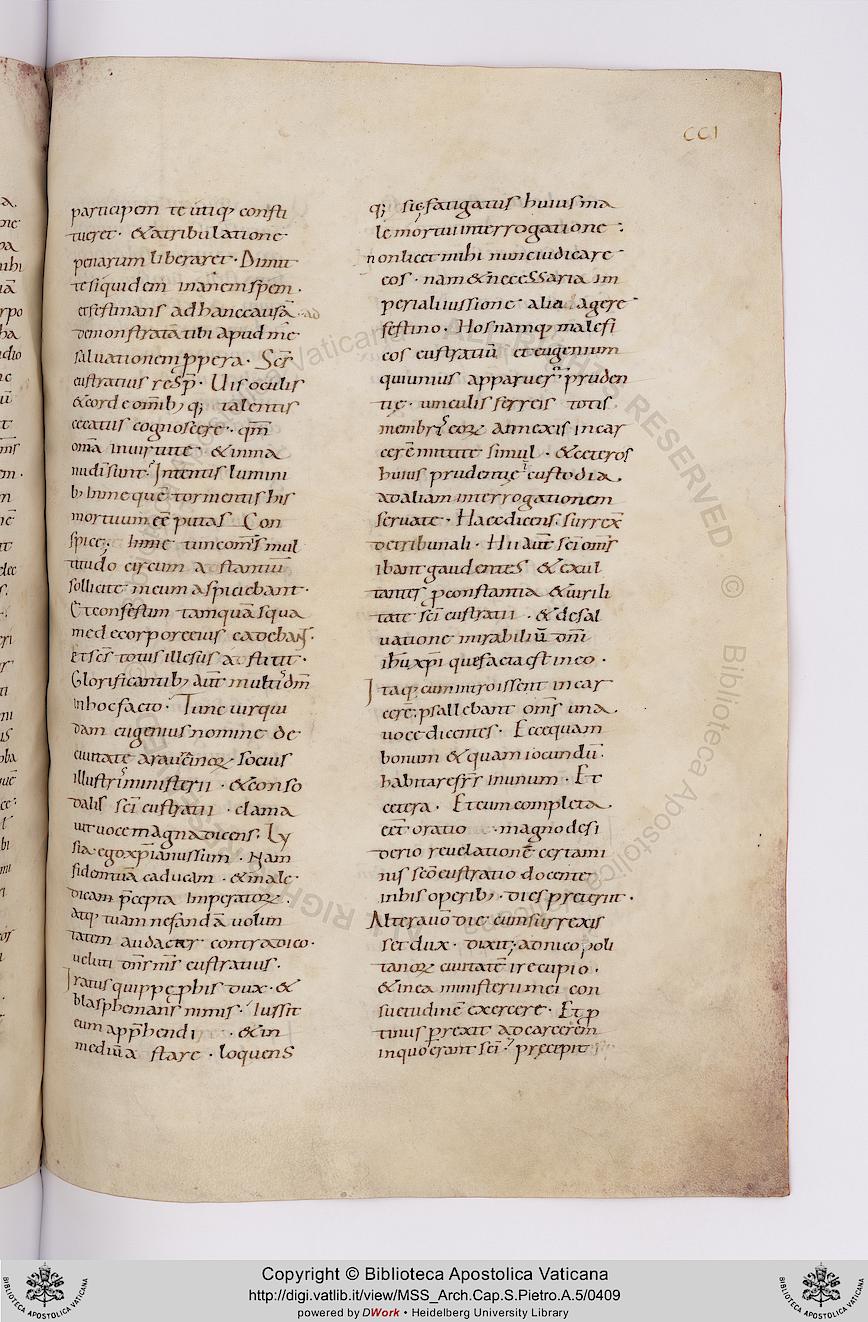 CCI
participem te utiq; consti
tueret · & a tribulatione ·
penarum liberaret · Dimit
te siquidem inanem spem ·
et festinans ad hanc causā · ad
demonstratā tibi apud mē
saluationem ꝓpera · Scs̄
eustratius resp̄ · Uis oculis
& corde omīb; q; talentis
cecatus cognoscere · qm̄
om̄a inuirtute · & inma
nudi sunt · Intentis lumini
b; hunc quē tormentis his
mortuum eē putas · Con
spice; hunc tunc om̄s mul
titudo circum astantiū
sollicite · meum aspiciebant ·
Et confestim tamquā squa
me de corpore eius cadebant ·
Et scs̄ totus illesus astitit ·
Glorificantib; aut̄ multis dm̄
in hoc facto · Tunc uir qui
dam eugenius nomine de
ciuitate arauracinoꝝ socius
illustris ministerii · & conso
dalis sc̄i eustratii · clama
uit uoce magna dicens · Ly
sia · ego xp̄ianus sum · Nam
sidem tuā caducam · & male
dicam p̄cepta Imperatoꝝ ·
atq; tuam nefandā uolun
tatem audacter contradico ·
ueluti dn̄s m̄s eustratius ·
Iratus quippe ꝓ his dux · &
blasphemans nimis · Iussit
eum app̄hendi · & in
mediū astare · loquens
q; sic fatigatus huius ma
le mortui interrogatione ·
non licet mihi nunc iudicare
eos · nam & necessaria im
periali iussione alia agere
festino · Hos namq; malefi
cos eustratiū et eugenium
qui unius apparuer̄ pruden
tię · uinculis ferreis totis
membris eoꝝ annexis in car
cerē mittite simul · & ceteros
huius prudentię custodia ·
ad aliam interrogationem
seruate · Haec dicens · surrex̄
de tribunali · Hii aut̄ sc̄i om̄s
ibant gaudentes & exul
tantes ꝓ constantia & uirili
tate sc̄i eustratii · & de sal
uatione mirabiliū dn̄i
ihū xp̄i que facta est in eo ·
Itaq; cum introissent in car
cerē; psallebant om̄s una
uoce dicentes · Ecce quam
bonum & quam iocundū
habitare fr̄s in unum · Et
cetera · Et cum completa
eēt oratio · magno desi
derio reuelationē certami
nis sc̄o eustratio docente
in his operib; · dies preteriit ·
Altera uō die cum surrexis
set dux · dixit; ad nicopoli
tanoꝝ ciuitatē ire cupio ·
& in ea ministerii mei con
suetudinē exercere · Et ꝓ
tinus perrexit ad carcerem
in quo erant sc̄i · & pręcepit
Copyright © Biblioteca Apostolica Vaticana
http://digi.vatlib.it/view/MSS_Arch.Cap.S.Pietro.A.5/0409
powered by DWork • Heidelberg University Library